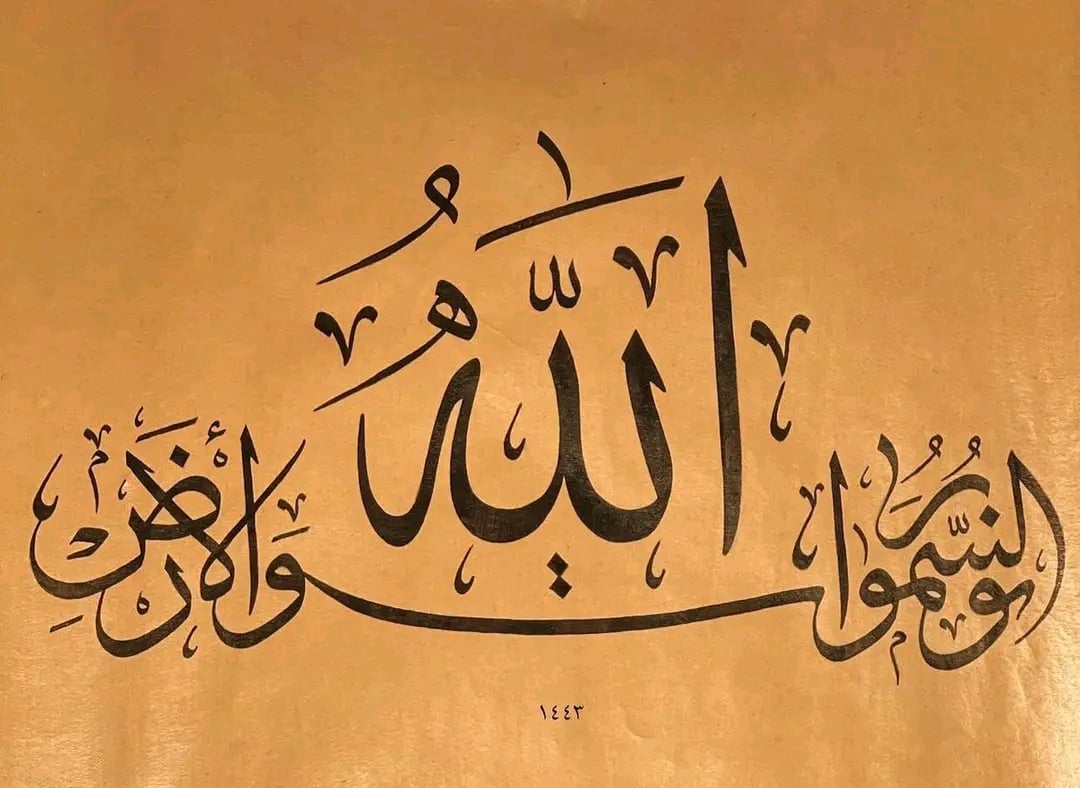 اللهُ نُورُ السَّمٰوَاتِ وَالْأَرْضِ
١٤٤٣